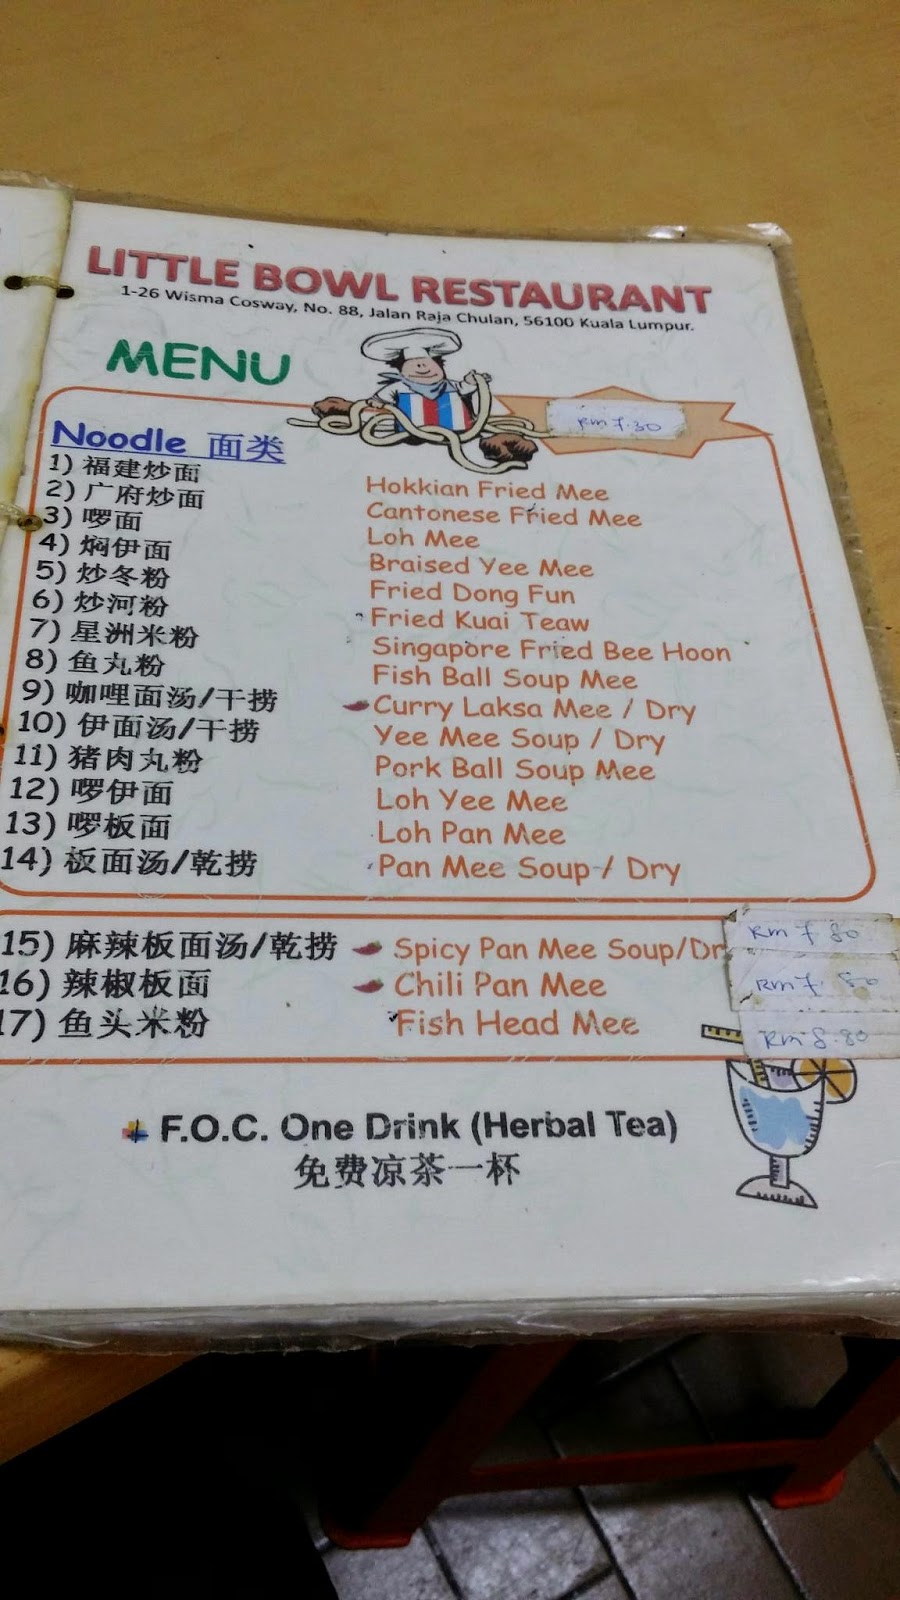 LITTLE BOWL RESTAURANT
1-26 Wisma Cosway, No. 88, Jalan Raja Chulan, 56100 Kuala Lumpur.
MENU
RM 7.30
Noodle 面类
1) 福建炒面 Hokkian Fried Mee
2) 广府炒面 Cantonese Fried Mee
3) 啰面 Loh Mee
4) 焖伊面 Braised Yee Mee
5) 炒冬粉 Fried Dong Fun
6) 炒河粉 Fried Kuai Teaw
7) 星洲米粉 Singapore Fried Bee Hoon
8) 鱼丸粉 Fish Ball Soup Mee
9) 咖哩面汤/干捞 Curry Laksa Mee / Dry
10) 伊面汤/干捞 Yee Mee Soup / Dry
11) 猪肉丸粉 Pork Ball Soup Mee
12) 啰伊面 Loh Yee Mee
13) 啰板面 Loh Pan Mee
14) 板面汤/乾捞 Pan Mee Soup / Dry
15) 麻辣板面汤/乾捞 Spicy Pan Mee Soup/Dr RM 7.80
16) 辣椒板面 Chili Pan Mee RM 7.80
17) 鱼头米粉 Fish Head Mee RM 8.80
F.O.C. One Drink (Herbal Tea)
免费凉茶一杯